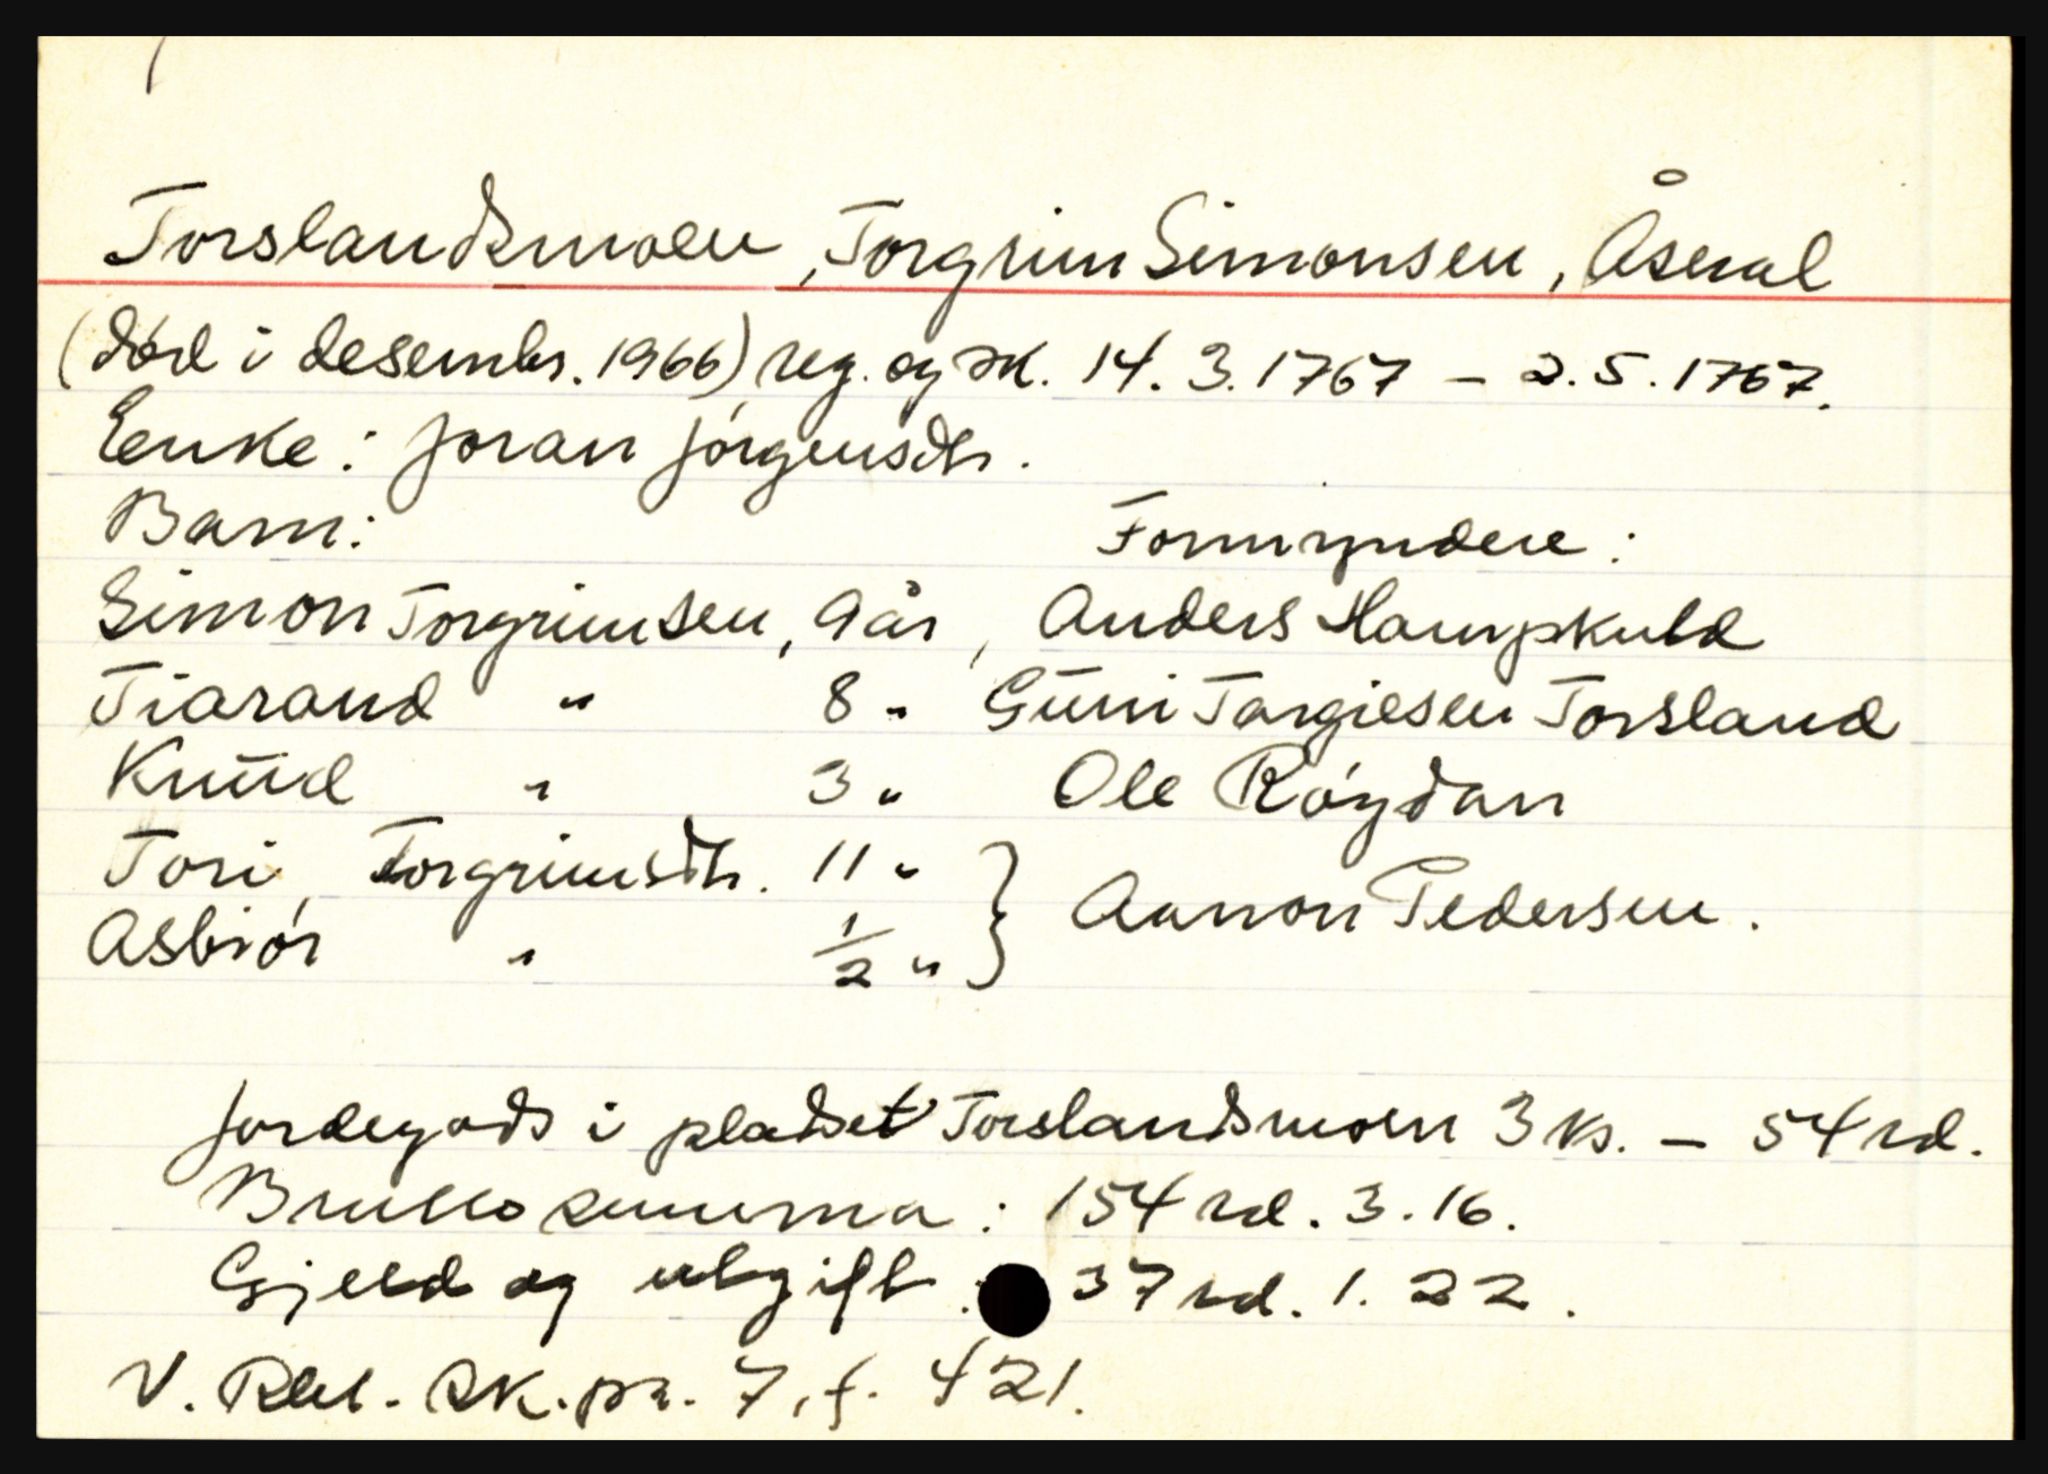 Torslandsmoen, Torgrim Simonsen, Åseral
(død i desembr. 1966) reg. og sk. 14.3.1767 – 2.5.1767.
Enke: Joran Jørgensdtr.
Barn: Formyndere:
Simon Torgrimsen, 9 år, Anders Hampkuld
Tiarand " 8 " Gūni Targiesen Torsland
Knūd " 3 " Ole Røydan
Tori Torgrimsdtr. 11 " }
Asbiør " 1/2 " } Aanon Pedersen.
Jordegods i pladset Torslandsmoen 3 ks. – 54 rd.
Brutto summa: 154 rd. 3. 16.
Gjeld og utgift. 37 rd. 1. 22.
V. Rbl. Sk.pr. 7, f. 421.